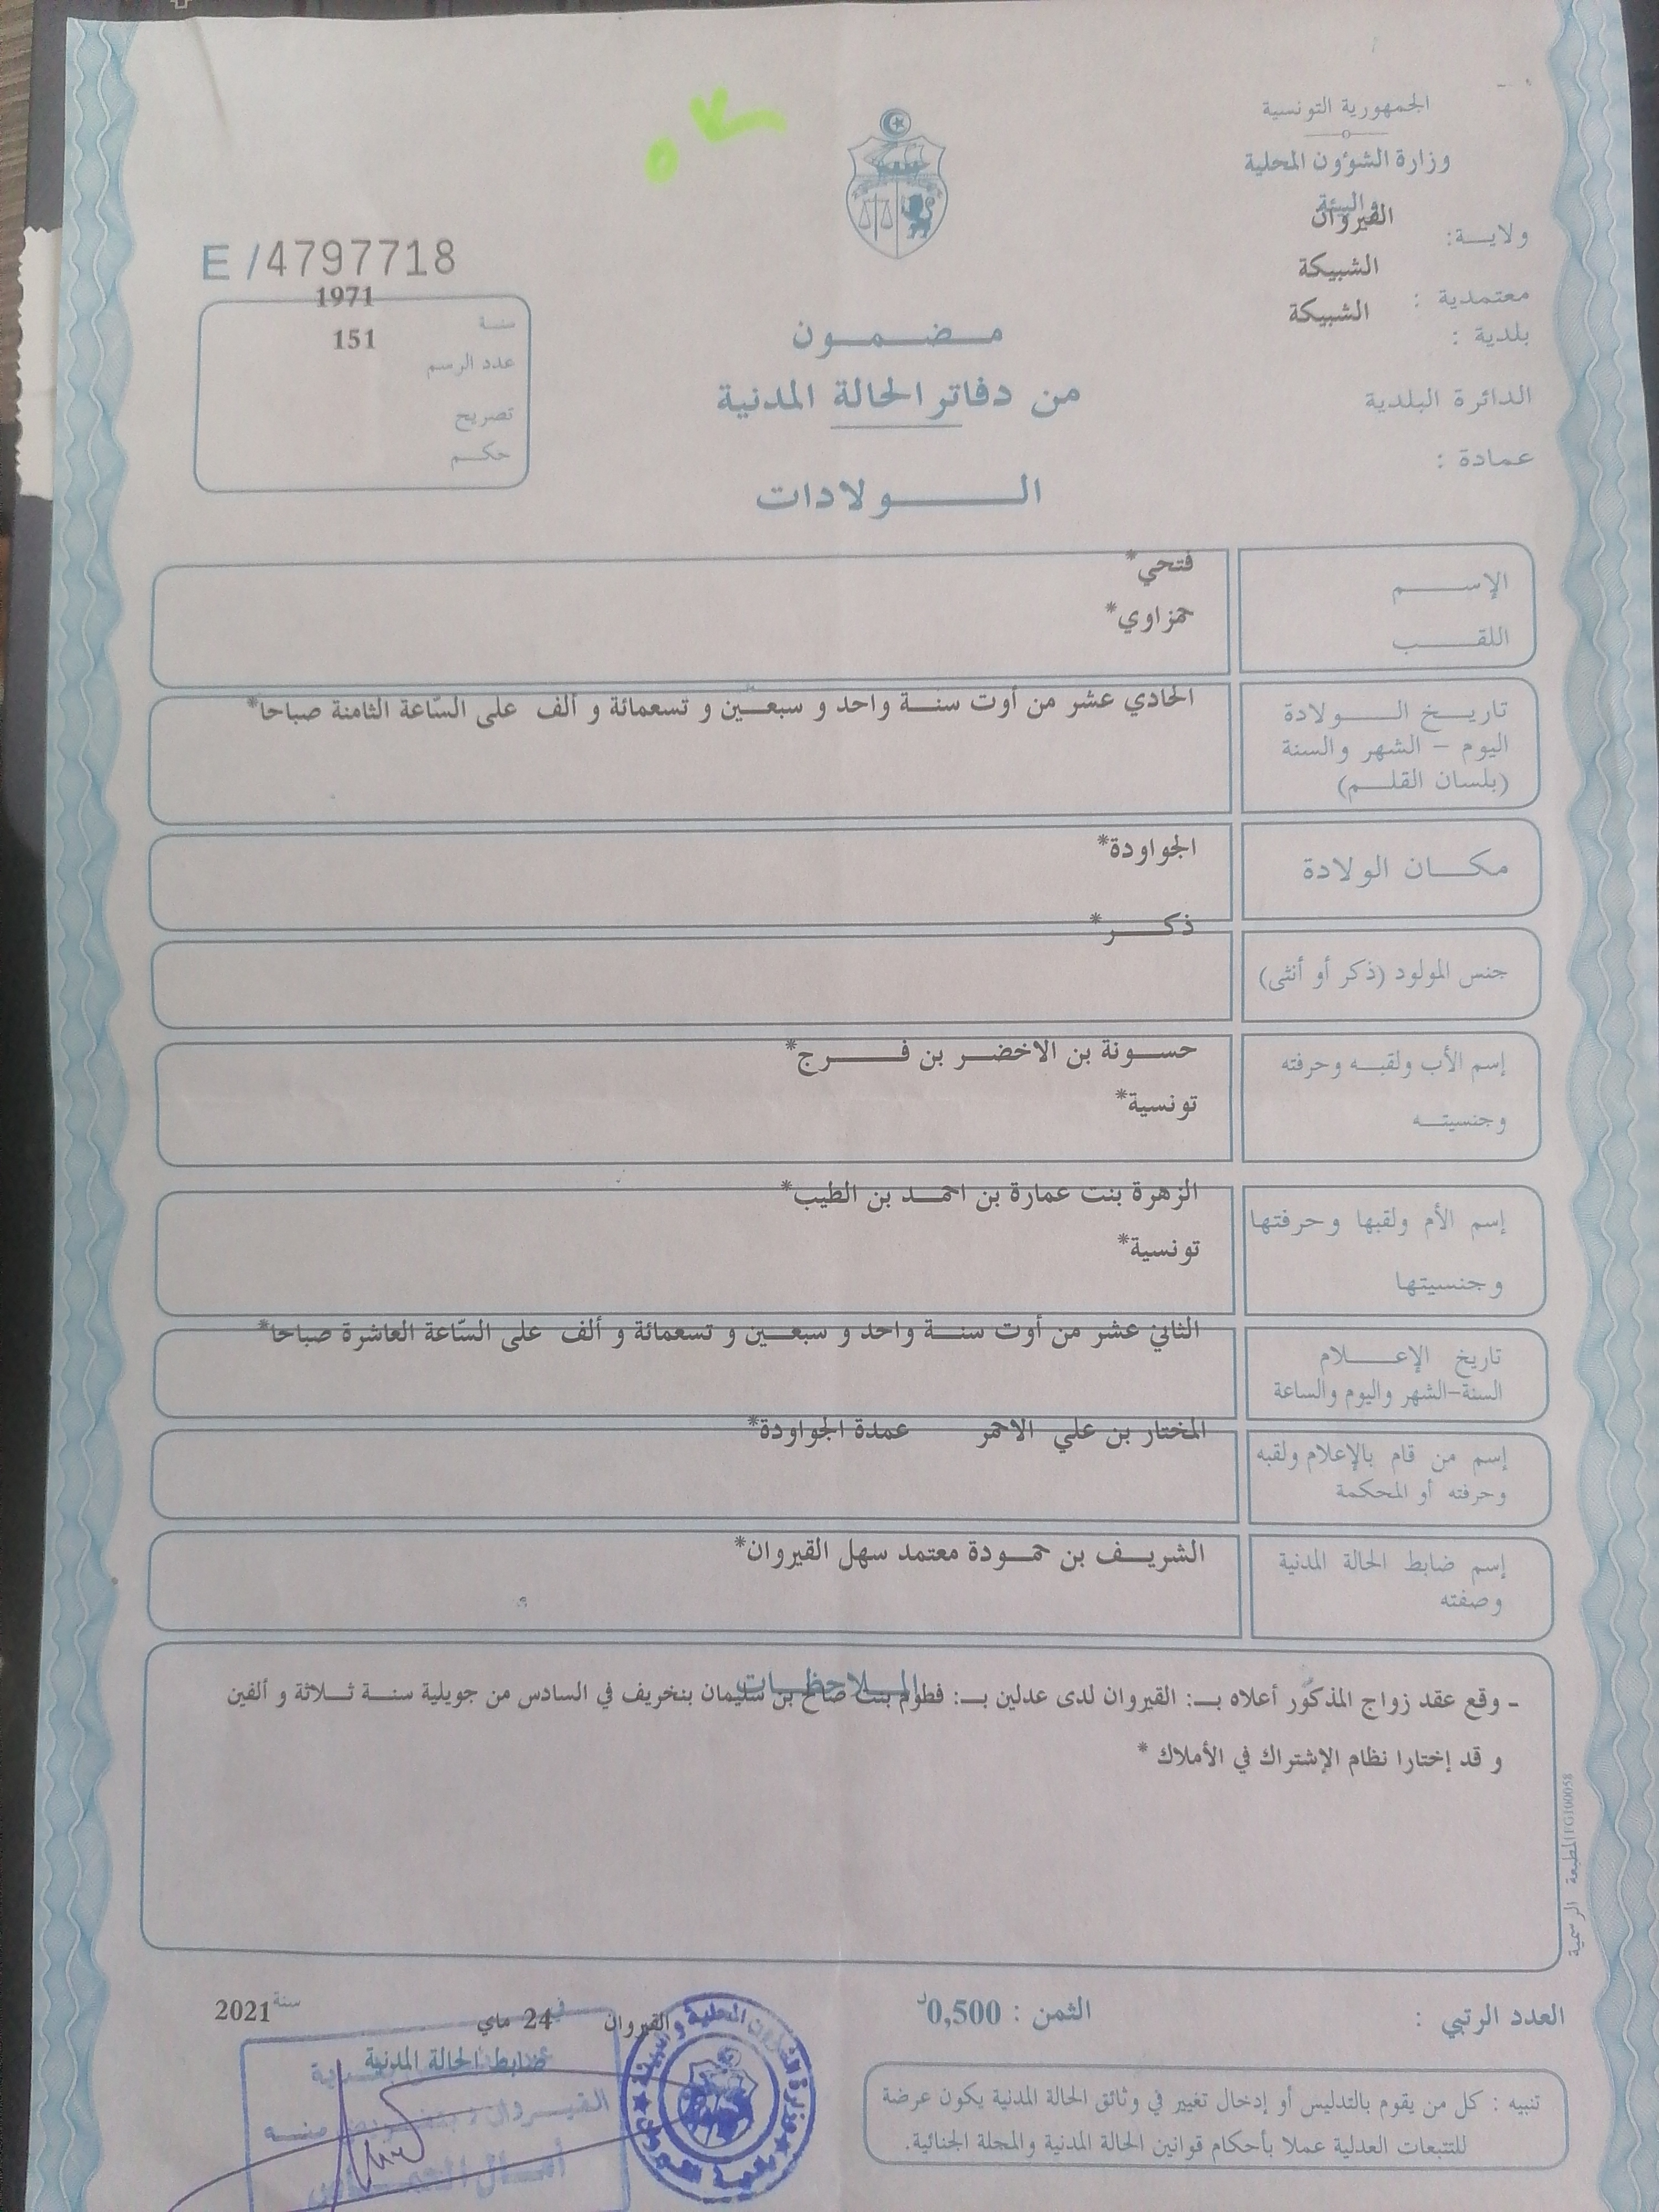 الجمهورية التونسية
وزارة الشؤون المحلية
والبيئة
ولاية: القيروان
معتمدية : الشبيكة
بلدية : الشبيكة
الدائرة البلدية
عمادة :
OK
E /4797718
سنة 1971
عدد الرسم 151
تصريح
حكم
مضمون
من دفاتر الحالة المدنية
الولادات
الإسم فتحي*
اللقب حمزاوي*
تاريخ الولادة الحادي عشر من أوت سنة واحد و سبعين و تسعمائة و ألف على السّاعة الثامنة صباحا*
اليوم - الشهر والسنة
(بلسان القلم)
مكان الولادة الجواودة*
جنس المولود (ذكر أو أنثى) ذكر*
إسم الأب ولقبه وحرفته حسونة بن الاخضر بن فرج*
وجنسيته تونسية*
إسم الأم ولقبها وحرفتها الزهرة بنت عمارة بن احمد بن الطيب*
وجنسيتها تونسية*
تاريخ الإعلام الثاني عشر من أوت سنة واحد و سبعين و تسعمائة و ألف على السّاعة العاشرة صباحا*
السنة-الشهر واليوم والساعة
إسم من قام بالإعلام ولقبه المختار بن علي الاحمر عمدة الجواودة*
وحرفته أو المحكمة
إسم ضابط الحالة المدنية الشريف بن حمودة معتمد سهل القيروان*
وصفته
الملاحظات
- وقع عقد زواج المذكور أعلاه بـ: القيروان لدى عدلين بـ: فطوم بنت صالح بن سليمان بنخريف في السادس من جويلية سنة ثلاثة و ألفين
و قد إختارا نظام الإشتراك في الأملاك *
المطبعة الرسمية FG100058
العدد الرتبي :
الثمن : 0,500د
القيروان في 24 ماي سنة 2021
ضابط الحالة المدنية
تنبيه : كل من يقوم بالتدليس أو إدخال تغيير في وثائق الحالة المدنية يكون عرضة
للتتبعات العدلية عملا بأحكام قوانين الحالة المدنية والمجلة الجنائية.